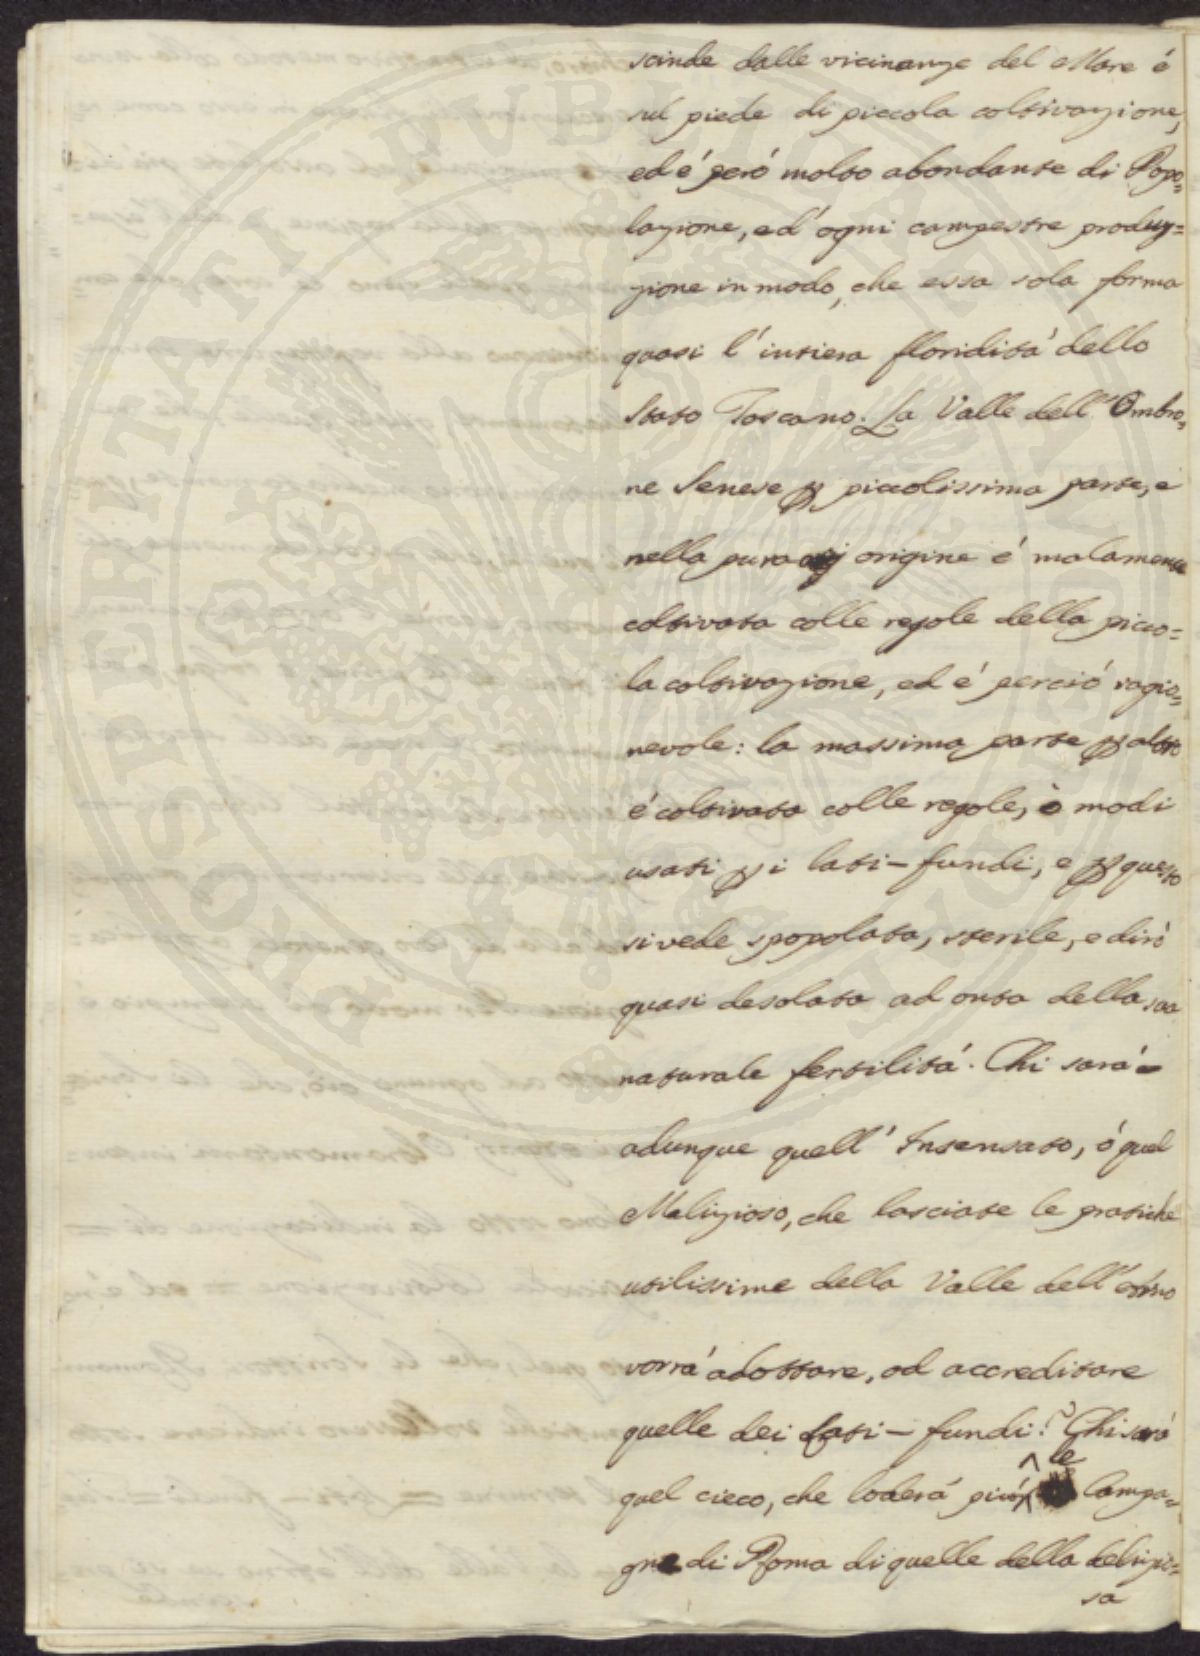 scinde dalle vicinanze del Mare é
sul piede di piccola coltivazione,
ed é peró molto abondante di Popo=
lazione, ed' ogni campestre produz=
zione in modo, che essa sola forma
quasi l' intiera floriditá dello
Stato Toscano. La Valle dell' Ombro,
ne Senese ꝑ piccolissima parte, e
nella pura origine é malamente
coltivata colle regole della picco=
la coltivazione, ed é perció ragio=
nevole: la massima parte ꝑ altro
é coltivata colle regole, ò modi
usati ꝑ i lati-fundi, e ꝑ questo
si vede spopolata, sterile, e diró
quasi desolata ad onta della sua
naturale fertilitá. Chi sará
adunque quell' Insensato, ó quel
Malizioso, che lasciate le pratiche
utilissime della Valle dell' Arno
vorrá adottare, od accreditare
quelle dei Lati-fundi? Chi sará
quel cieco, che loderá piú le Campa=
gne di Roma di quelle della delizio=
sa
PROSPERITATI PUBLICAE AUGENDAE